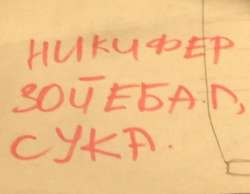 НИКИФЕР
ЗОЙЕБАЛ,
СУКА.